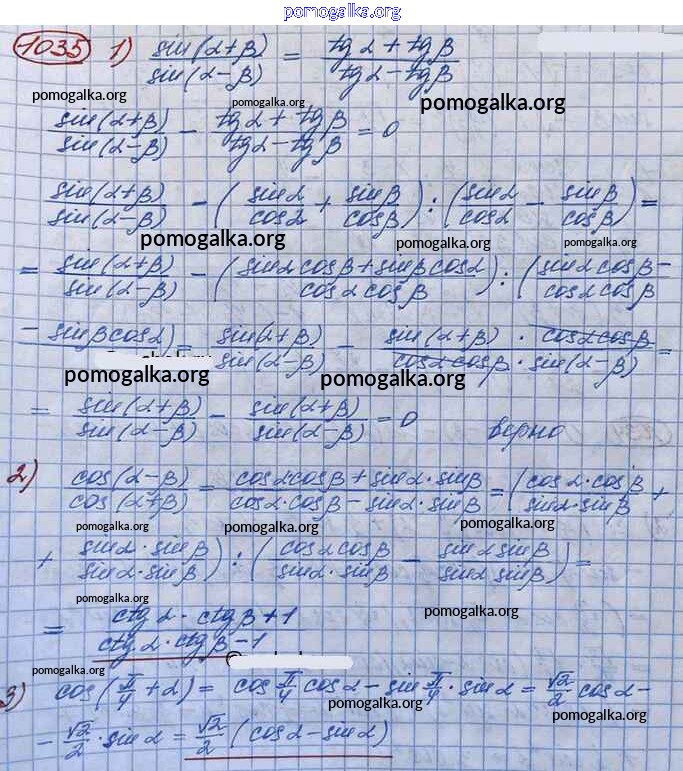 pomogalka.org
1035 1) sin(α+β)/sin(α−β) = (tg α + tg β)/(tg α − tg β)
pomogalka.org pomogalka.org pomogalka.org
sin(α+β)/sin(α−β) − (tg α + tg β)/(tg α − tg β) = 0
sin(α+β)/sin(α−β) − (sin α/cos α + sin β/cos β) : (sin α/cos α − sin β/cos β) =
pomogalka.org pomogalka.org pomogalka.org
= sin(α+β)/sin(α−β) − ((sin α cos β + sin β cos α)/(cos α cos β)) : ((sin α cos β −/cos α cos β
− sin β cos α) = sin(α+β)/sin(α−β) − (sin(α+β) · cos α cos β)/(cos α cos β · sin(α−β)) =
pomogalka.org pomogalka.org
= sin(α+β)/sin(α−β) − sin(α+β)/sin(α−β) = 0 верно
2) cos(α−β)/cos(α+β) = (cos α cos β + sin α · sin β)/(cos α · cos β − sin α · sin β) = (cos α · cos β/sin α · sin β +
pomogalka.org pomogalka.org pomogalka.org
+ sin α · sin β/sin α · sin β) : (cos α cos β/sin α · sin β − sin α sin β/sin α sin β) =
pomogalka.org pomogalka.org
= (ctg α · ctg β + 1)/(ctg α · ctg β − 1)
pomogalka.org
3) cos(π/4 + α) = cos π/4 cos α − sin π/4 · sin α = √2/2 cos α −
pomogalka.org pomogalka.org
− √2/2 · sin α = √2/2 (cos α − sin α)